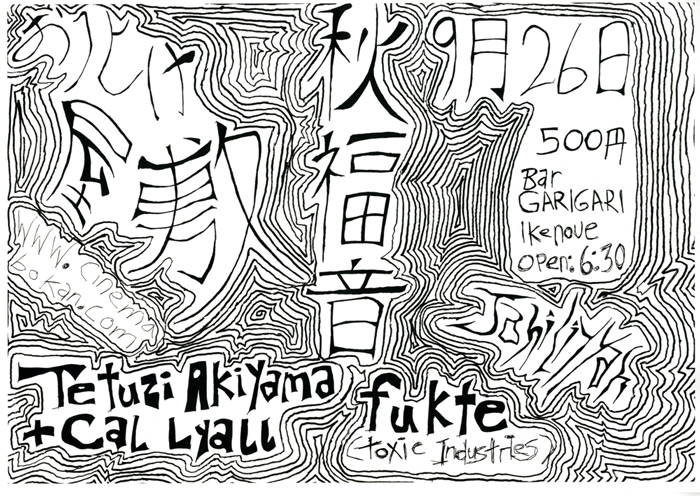 秋福音
9月26日
500円
Bar
GARIGARI
Ikenoue
open: 6:30
www.cinema
bokan.com
Tetuzi Akiyama
+ Cal Lyall
fukte
(toxie Industries)